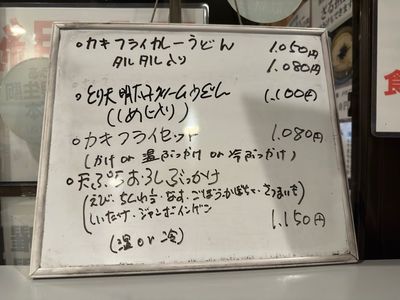 ○カキフライカレーうどん 1.050円
タルタル入り 1.080円
○とり天明太子クリームうどん 1.100円
(しめじ入り)
○カキフライセット 1.080円
(かけ or 温ぶっかけ or 冷ぶっかけ)
○天ぷらおろしぶっかけ
(えび・ちくわ・なす・ごぼう・かぼちゃ・さつまいも
しいたけ・ジャンボインゲン 1.150円
(温 or 冷)